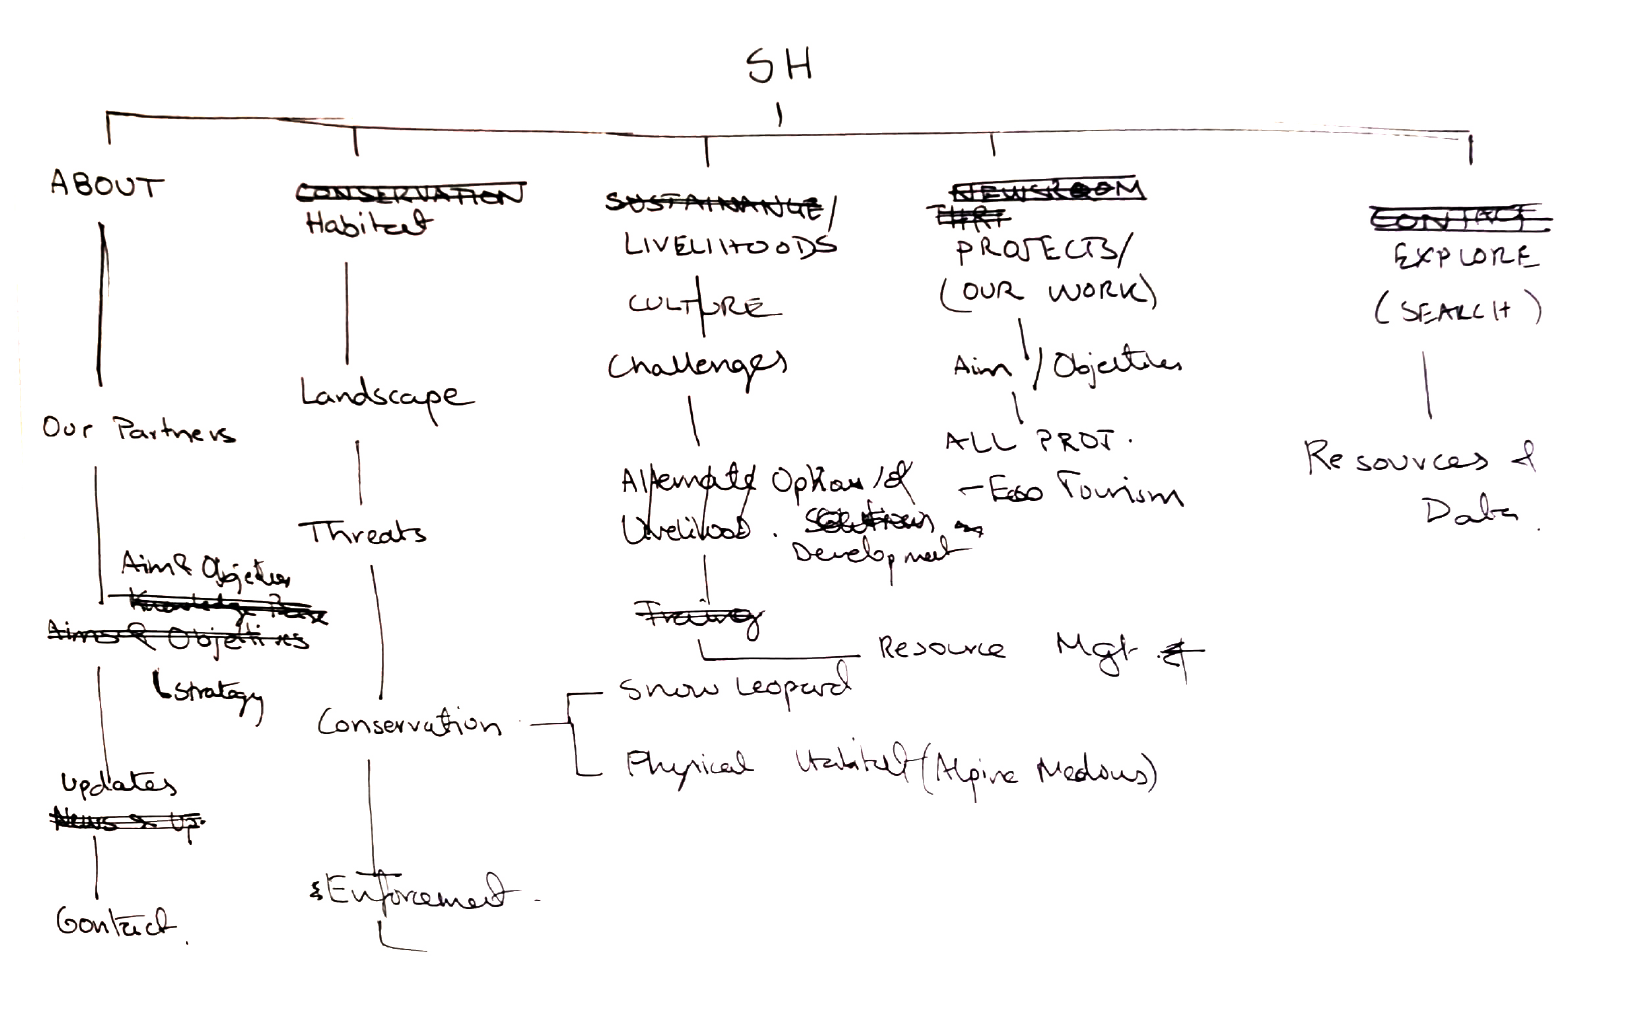 SH
ABOUT
Our Partners
Aim & Objectives
Knowledge Base
Aims & Objectives
Strategy
Updates
News & Up.
Contact.
CONSERVATION
Habitat
Landscape
Threats
Conservation
Snow Leopard
Physical Habitat (Alpine Medows)
& Enforcement.
SUSTAINANCE/
LIVELIHOODS
CULTURE
Challenges
Alternate Options/of
Livelihood. Solutions
Development
Training
Resource Mgt
NEWSROOM
PROJECTS/
(OUR WORK)
Aim / Objectives
ALL PROJ.
- Eco Tourism
CONTACT
EXPLORE
(SEARCH)
Resources &
Data.